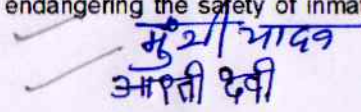 endangering the safety of inmat
मुंशी यादव
आरती देवी